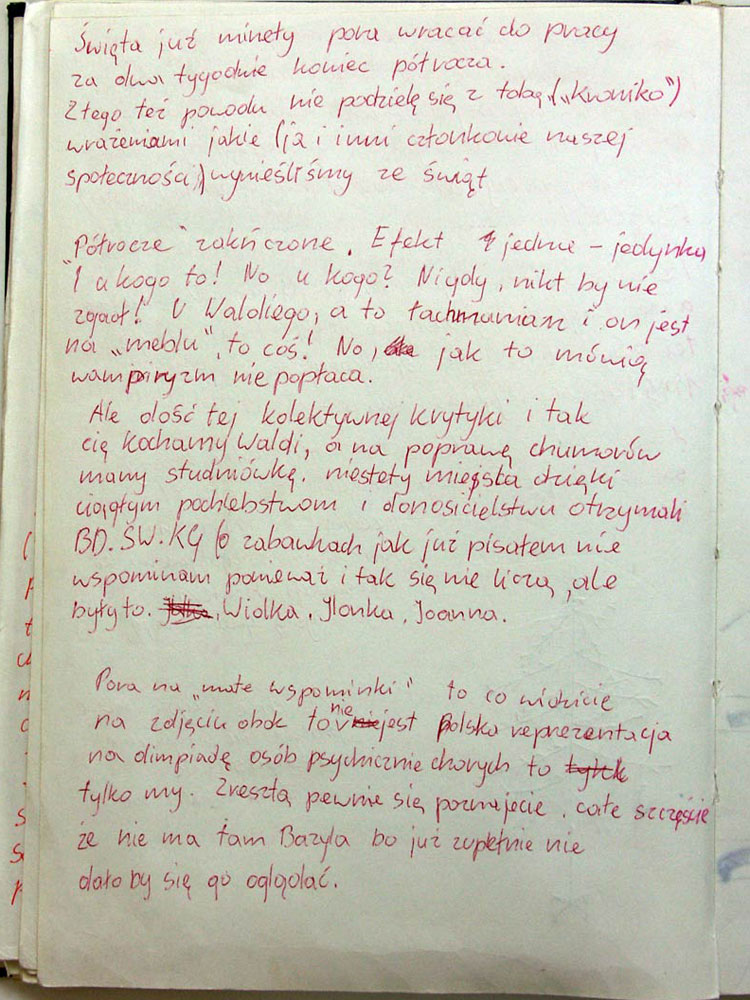 Święta już minęły pora wracać do pracy
za dwa tygodnie koniec półrocza.
Z tego też powodu nie podzielę się z tobą („Kroniko”)
wrażeniami jakie (ja i inni członkowie naszej
społeczności) wynieśliśmy ze świąt
"Półrocze" zakończone. Efekt jedna – jedynka
"I u kogo to! No u kogo? Nigdy, nikt by nie
zgadł! U Waldiego, a to łachmaniarz i on jest
na „meblu”, to coś! No, jak to mówią
wampiryzm nie popłaca.
Ale dość tej kolektywnej krytyki i tak
cię kochamy Waldi, a na poprawę chumorów
mamy studniówkę. niestety miejsca dzięki
ciągłym pochlebstwom i donosicielstwu otrzymali
BD. ŚW. KG (o zabawkach jak już pisałem nie
wspominam ponieważ i tak się nie liczą, ale
były to. Wiolka, Ilonka, Joanna.
Pora na „małe wspominki” to co widzicie
na zdjęciu obok to nie jest Polska reprezentacja
na olimpiadę osób psychicznie chorych to
tylko my. Zresztą pewnie się poznajecie. całe szczęście
że nie ma tam Bazyla bo już zupełnie nie
dało by się go oglądać.